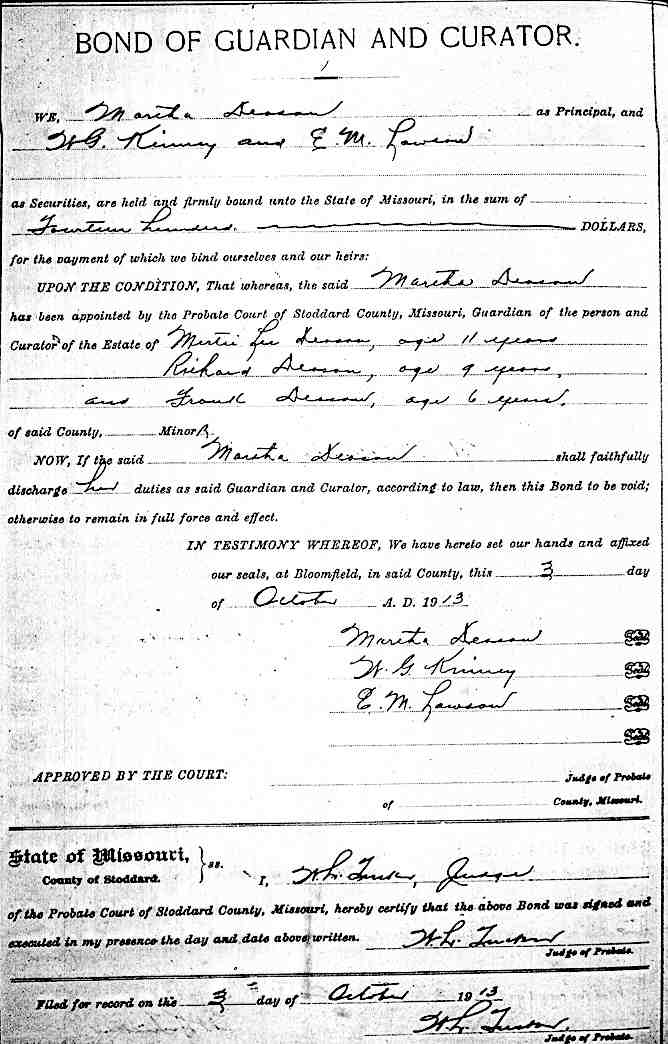 BOND OF GUARDIAN AND CURATOR.
WE, Martha Deason as Principal, and
W.G. Kinney and E.M. Lawson
as Securities, are held and firmly bound unto the State of Missouri, in the sum of
Fourteen hundred. DOLLARS,
for the payment of which we bind ourselves and our heirs:
UPON THE CONDITION, That whereas, the said Martha Deason
has been appointed by the Probate Court of Stoddard County, Missouri, Guardian of the person and
Curator of the Estate of Mertie Lee Deason, age 11 years
Richard Deason, age 9 years,
and Frank Deason, age 6 years.
of said County, Minors.
NOW, If the said Martha Deason shall faithfully
discharge her duties as said Guardian and Curator, according to law, then this Bond to be void;
otherwise to remain in full force and effect.
IN TESTIMONY WHEREOF, We have hereto set our hands and affixed
our seals, at Bloomfield, in said County, this 3 day
of October A. D. 1913
Martha Deason Seal
W. G. Kinney Seal
E. M. Lawson Seal
Seal
APPROVED BY THE COURT: Judge of Probate
of County, Missouri.
State of Missouri, } ss.
County of Stoddard. I, W.L. Tucker, Judge
of the Probate Court of Stoddard County, Missouri, hereby certify that the above Bond was signed and
executed in my presence the day and date above written. W.L. Tucker
Judge of Probate.
Filed for record on the 3 day of October 1913
W.L. Tucker.
Judge of Probate.